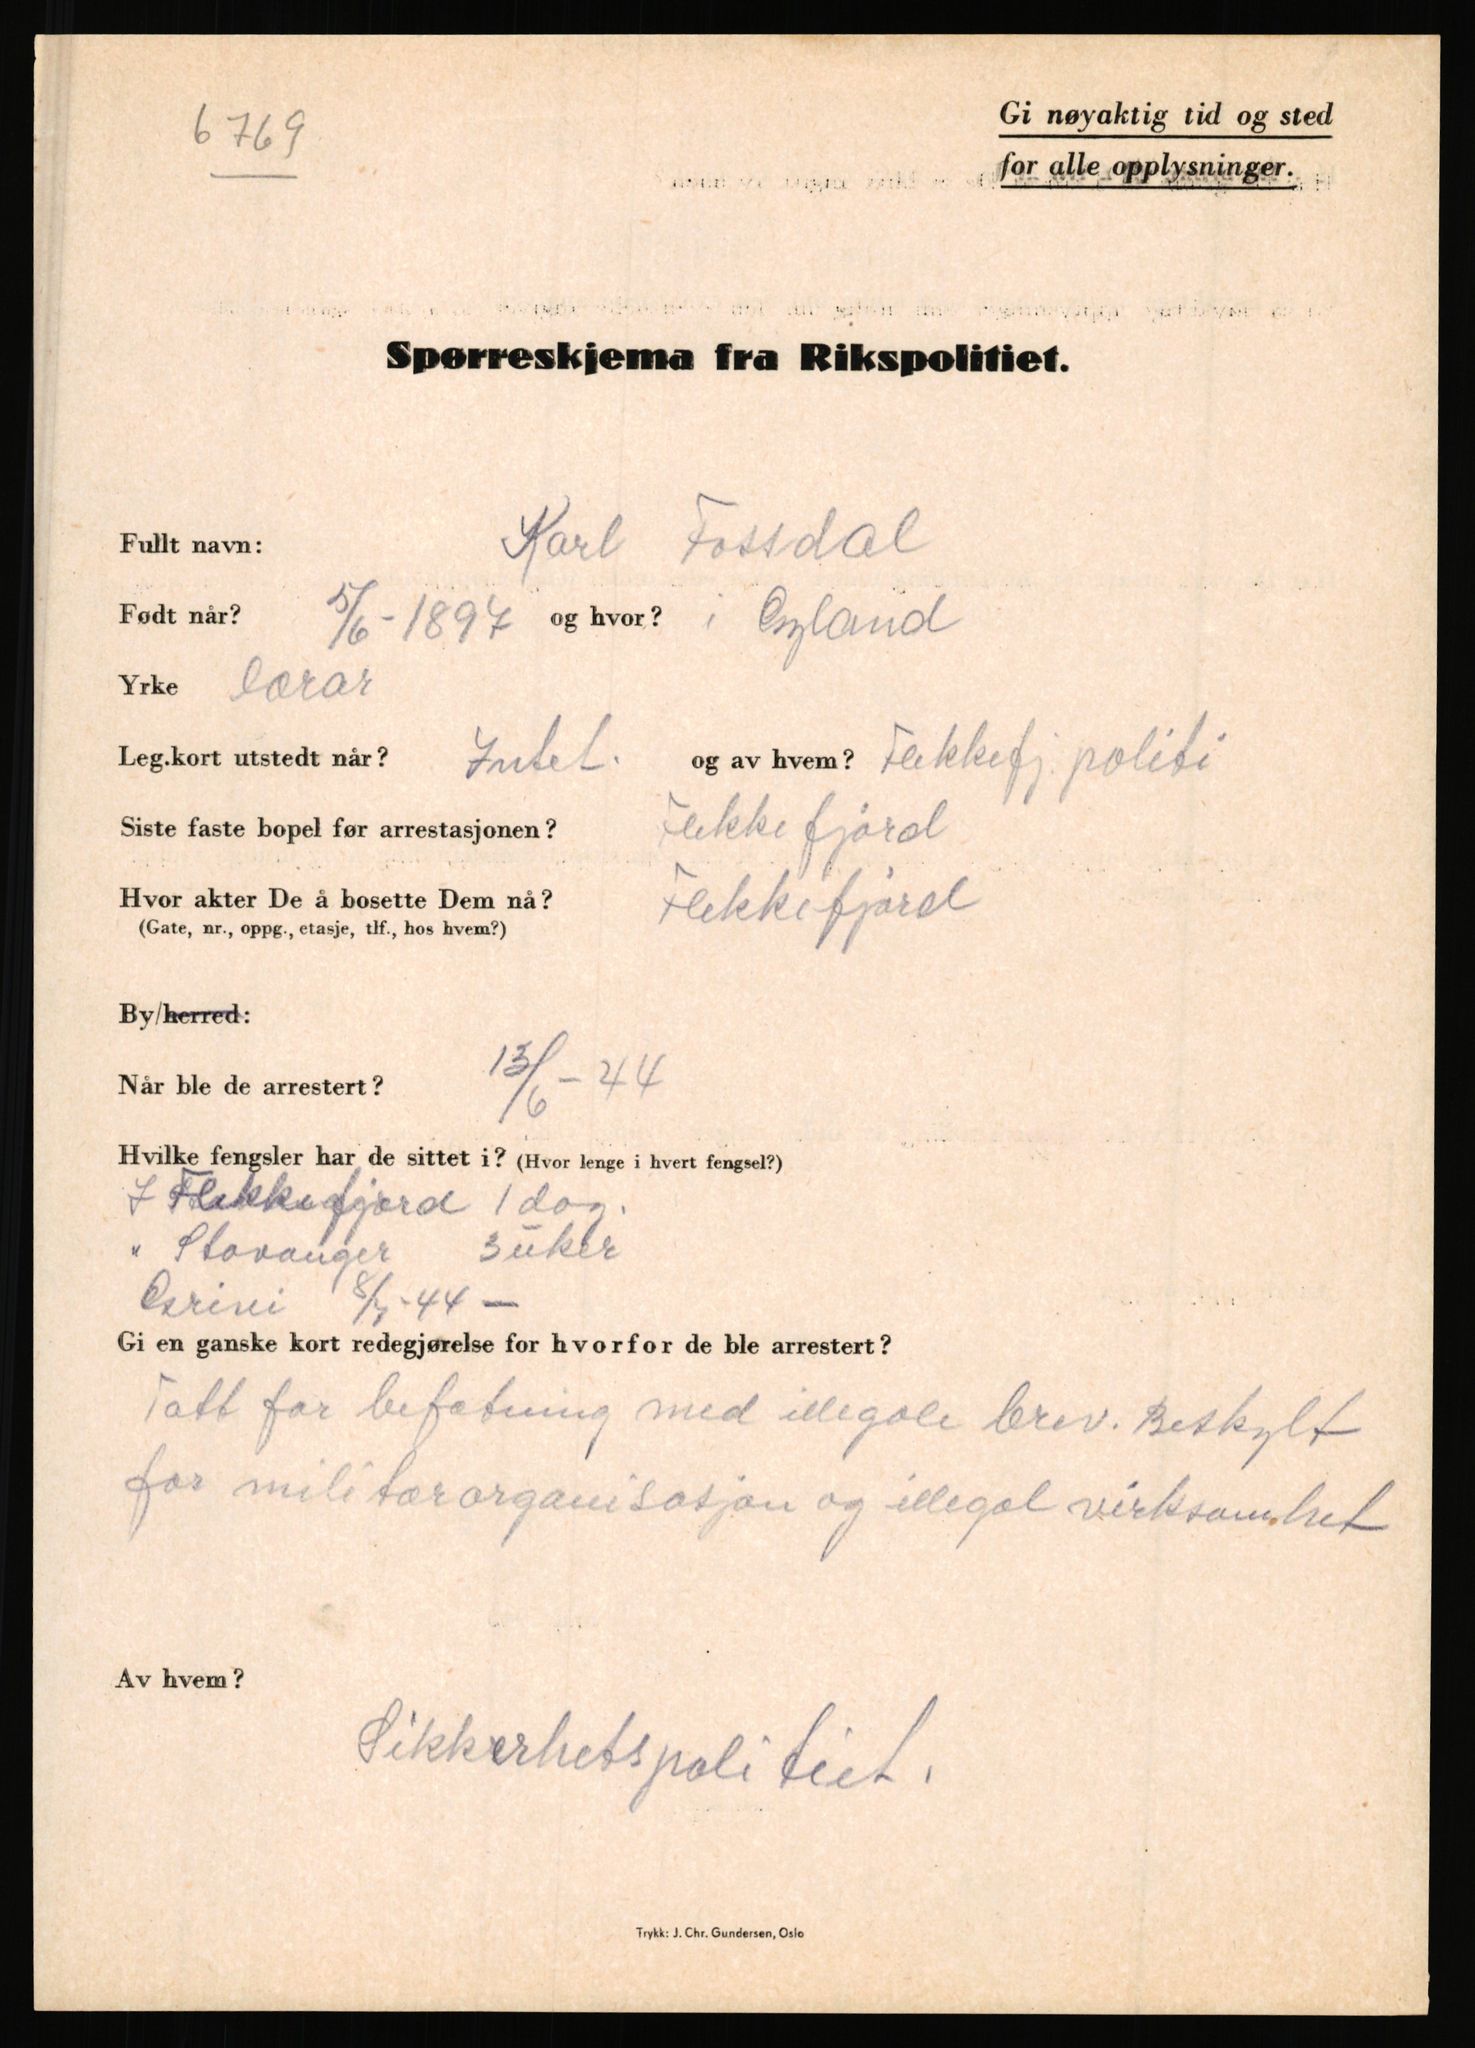 6769
Gi nøyaktig tid og sted
for alle opplysninger.
Spørreskjema fra Rikspolitiet.
Fullt navn: Karl Fossdal
Født når? 5/6-1897 og hvor? i Gyland
Yrke Lærar
Leg.kort utstedt når? Intet. og av hvem? Flekkefj. politi
Siste faste bopel før arrestasjonen? Flekkefjord
Hvor akter De å bosette Dem nå? Flekkefjord
(Gate, nr., oppg., etasje, tlf., hos hvem?)
By/herred:
Når ble de arrestert? 13/6-44
Hvilke fengsler har de sittet i? (Hvor lenge i hvert fengsel?)
I Flekkefjord 1 dag.
" Stavanger 3 uker
Grini 8/7-44 —
Gi en ganske kort redegjørelse for hvorfor de ble arrestert?
Tatt for befatning med illegale brev. Beskylt
for militærorganisasjon og illegal virksomhet
Av hvem?
Sikkerhetspolitiet.
Trykk: J. Chr. Gundersen, Oslo